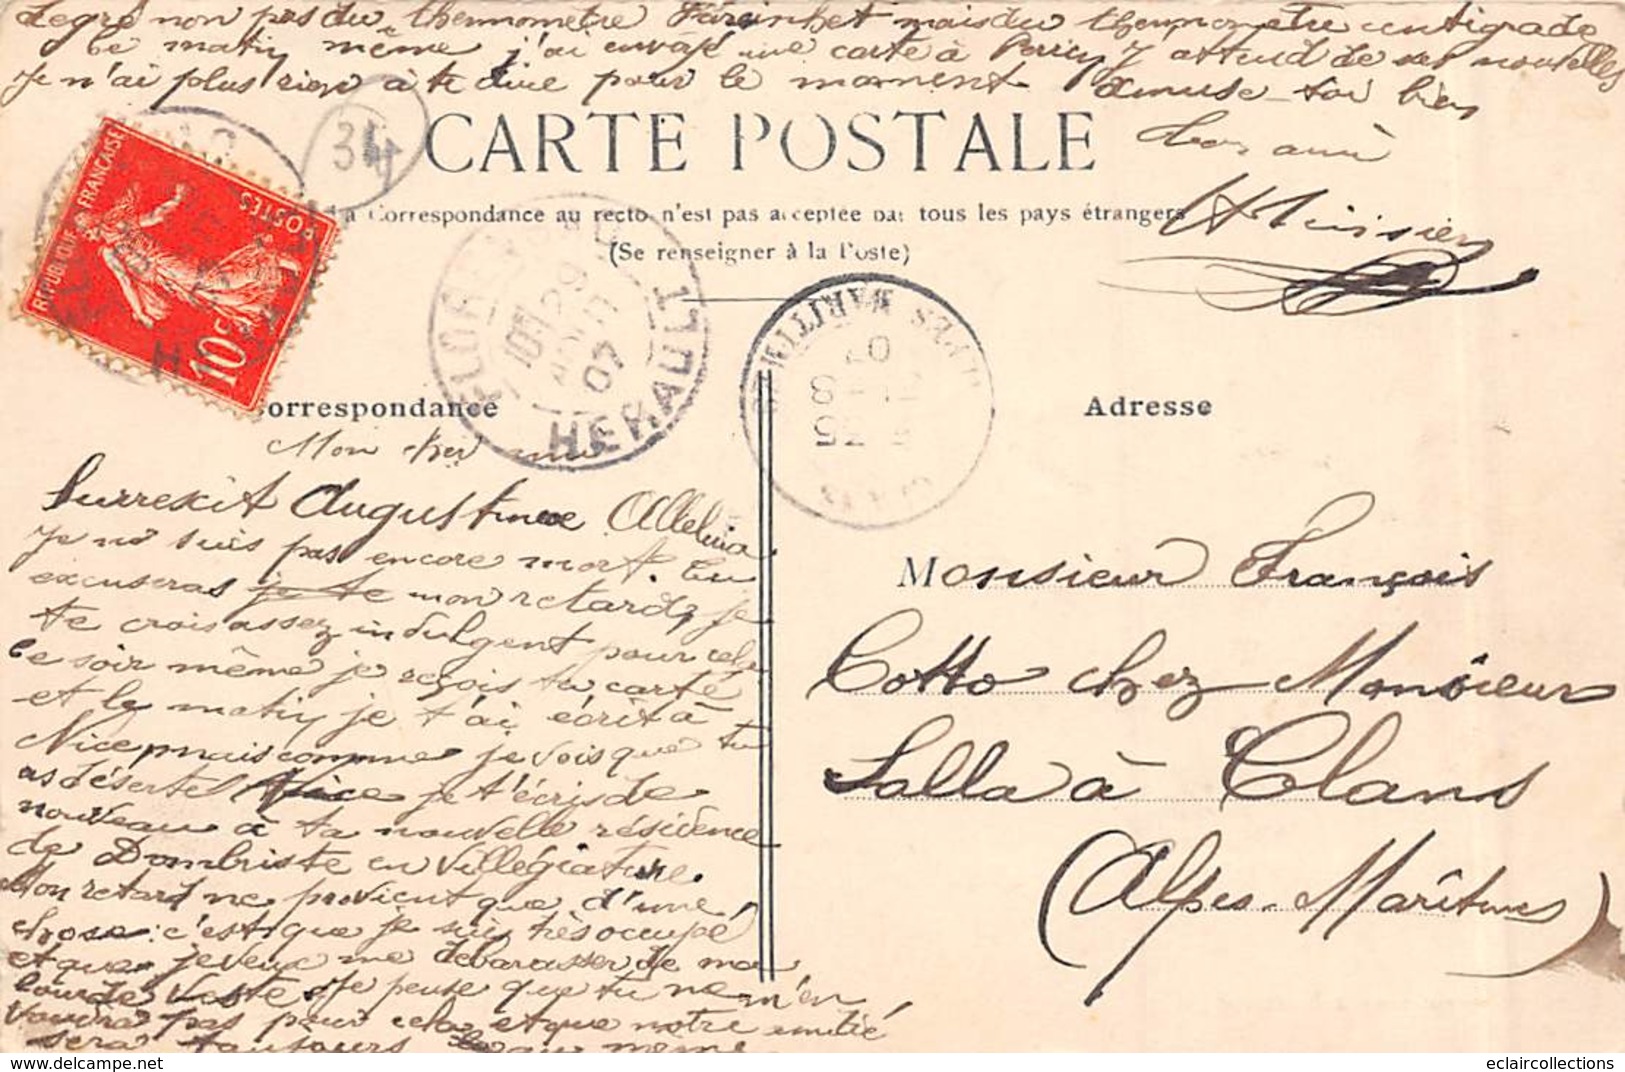 degré non pas du thermomètre Fareinhet mais du thermomètre centigrade
Ce matin même j'ai envoyé une carte à Perricy J'attend de ses nouvelles
Je n'ai plus rien à te dire pour le moment Amuse-toi bien
34
CARTE POSTALE
ton ami
La Correspondance au recto n'est pas acceptée par tous les pays étrangers
(Se renseigner à la Poste)
RÉPUBLIQUE FRANÇAISE
POSTES
10c
HERAULT
07
ALPES MARITIMES
07
Correspondance
Adresse
Mon cher ami
Surrexit Augustinus Alleluia
Je ne suis pas encore mort. Tu
excuseras je te mon retard, je
te crois assez indulgent pour cela
Ce soir même je reçois ta carte
et le matin je t'ai écrit à
Nice mais comme je vois que tu
as déserté Nice je t'écris de
nouveau à ta nouvelle résidence
de Dombriste en villégiature.
Mon retard ne provient que d'une
chose: c'est que je suis très occupé
et que je veux me débarasser de ma
lourde veste. Je pense que tu ne m'en
voudra pas pour cela et que notre amitié
sera toujours au même
Monsieur François
Cotto chez Monsieur
Salla à Clans
(Alpes-Marîtimes)
eclaircollections